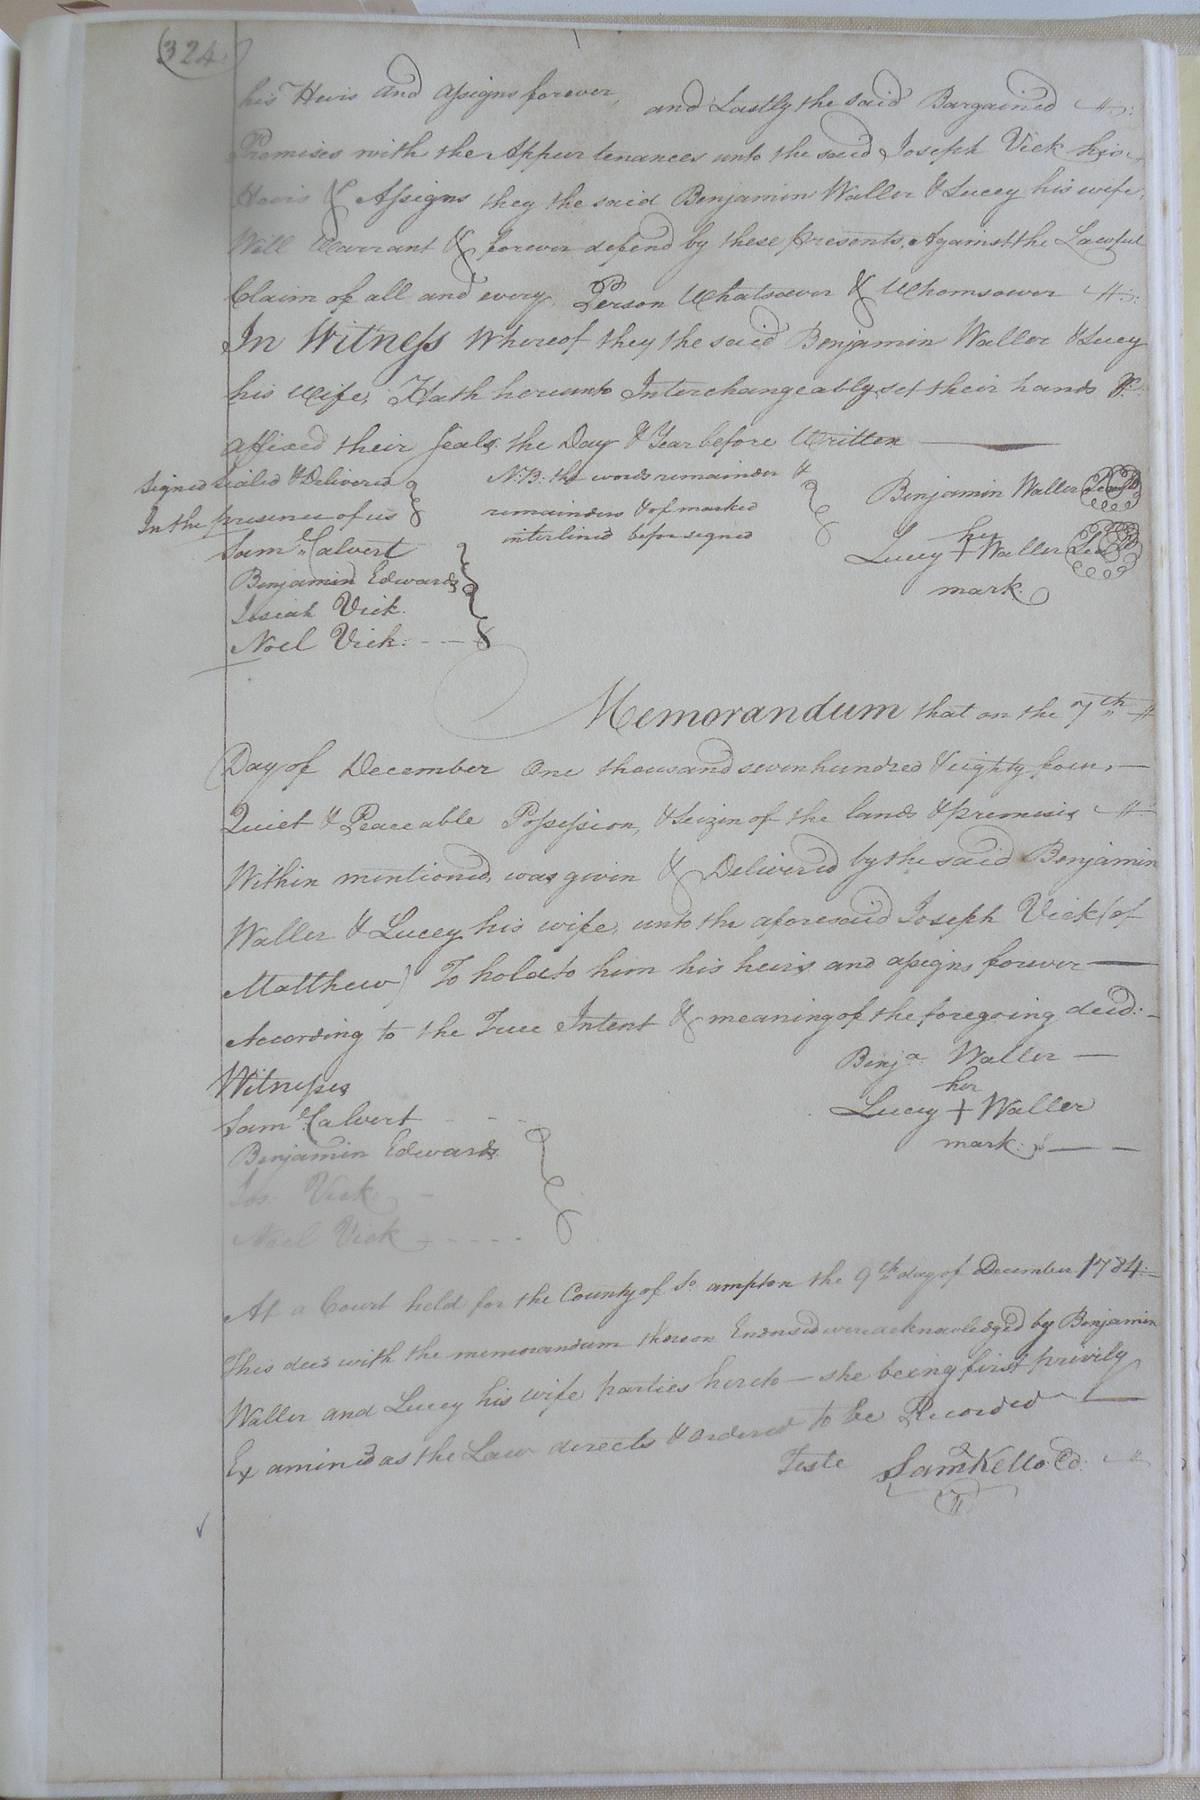 (324)
his Heirs and assigns forever, and Lastly the said Bargained
Premises with the Appurtenances unto the said Joseph Vick his
Heirs & Assigns they the said Benjamin Waller & Lucey his wife,
Will Warrant & forever defend by these presents, Against the Lawful
Claim of all and every Person Whatsoever & Whomsoever
In Witness Whereof they the said Benjamin Waller & Lucey
his Wife, Hath hereunto Interchangeably set their hands &
affixed their Seals the Day & Year before Written
Signed Sealed & Delivered
In the presence of us
Saml. Calvert
Benjamin Edwards
Josiah Vick.
Noel Vick.
N:B: the words remainder &
remainders & of marked
interlined before signed
Benjamin Waller Seal
her
Lucey + Waller Seal
mark.
Memorandum that on the 7th
Day of December One thousand seven hundred & eighty four,
Quiet & Peaceable Possession, & Seizin of the lands & premises
Within mentioned, was given & Delivered by the said Benjamin
Waller & Lucey his wife, unto the aforesaid Joseph Vick (of
Matthew) To hold to him his heirs and assigns forever
According to the True Intent & meaning of the foregoing deed.
Witnesses
Saml. Calvert
Benjamin Edwards
Jos. Vick
Noel Vick
Benja Waller
her
Lucey + Waller
mark.
At a Court held for the County of So. ampton the 9th day of December 1784
This deed with the memorandum thereon Endorsed were acknowledged by Benjamin
Waller and Lucey his wife parties hereto - she being first privily
Examined as the Law directs & ordered to be Recorded
Teste Saml. Kello Cl.